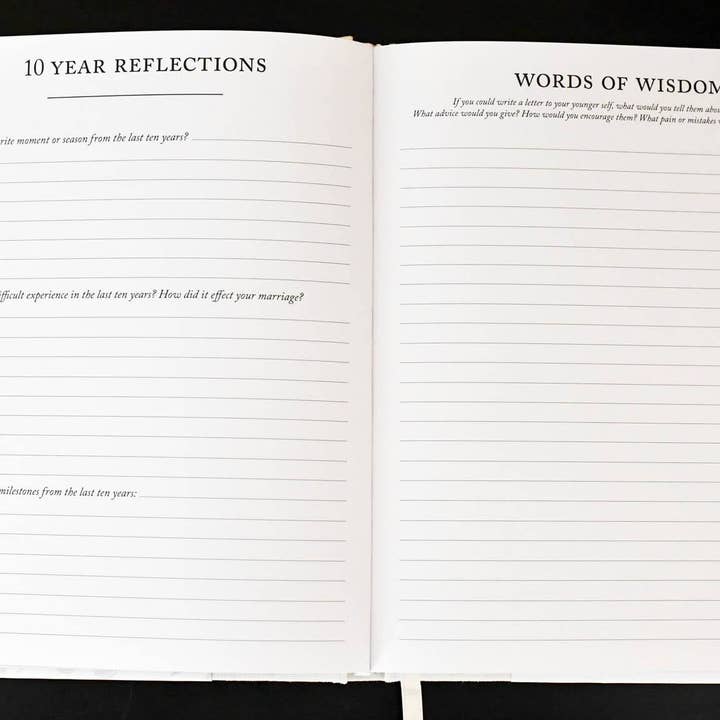 10 YEAR REFLECTIONS
moment or season from the last ten years?
experience in the last ten years? How did it effect your marriage?
milestones from the last ten years:
WORDS OF WISDOM
If you could write a letter to your younger self, what would you tell them
What advice would you give? How would you encourage them? What pain or mistakes